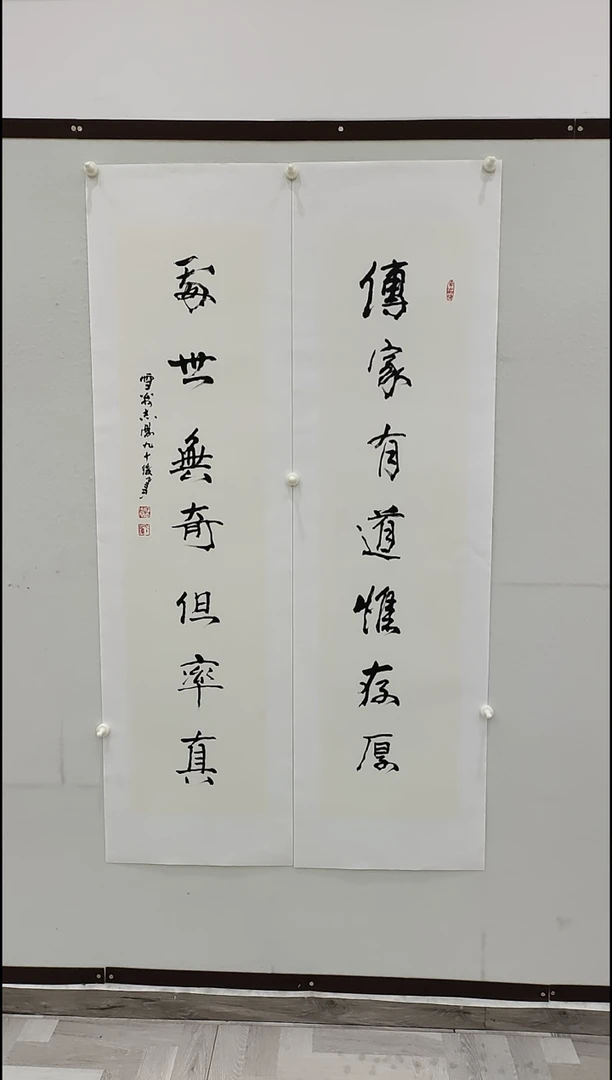 傳家有道惟存厚
處世無奇但率真
九十後書